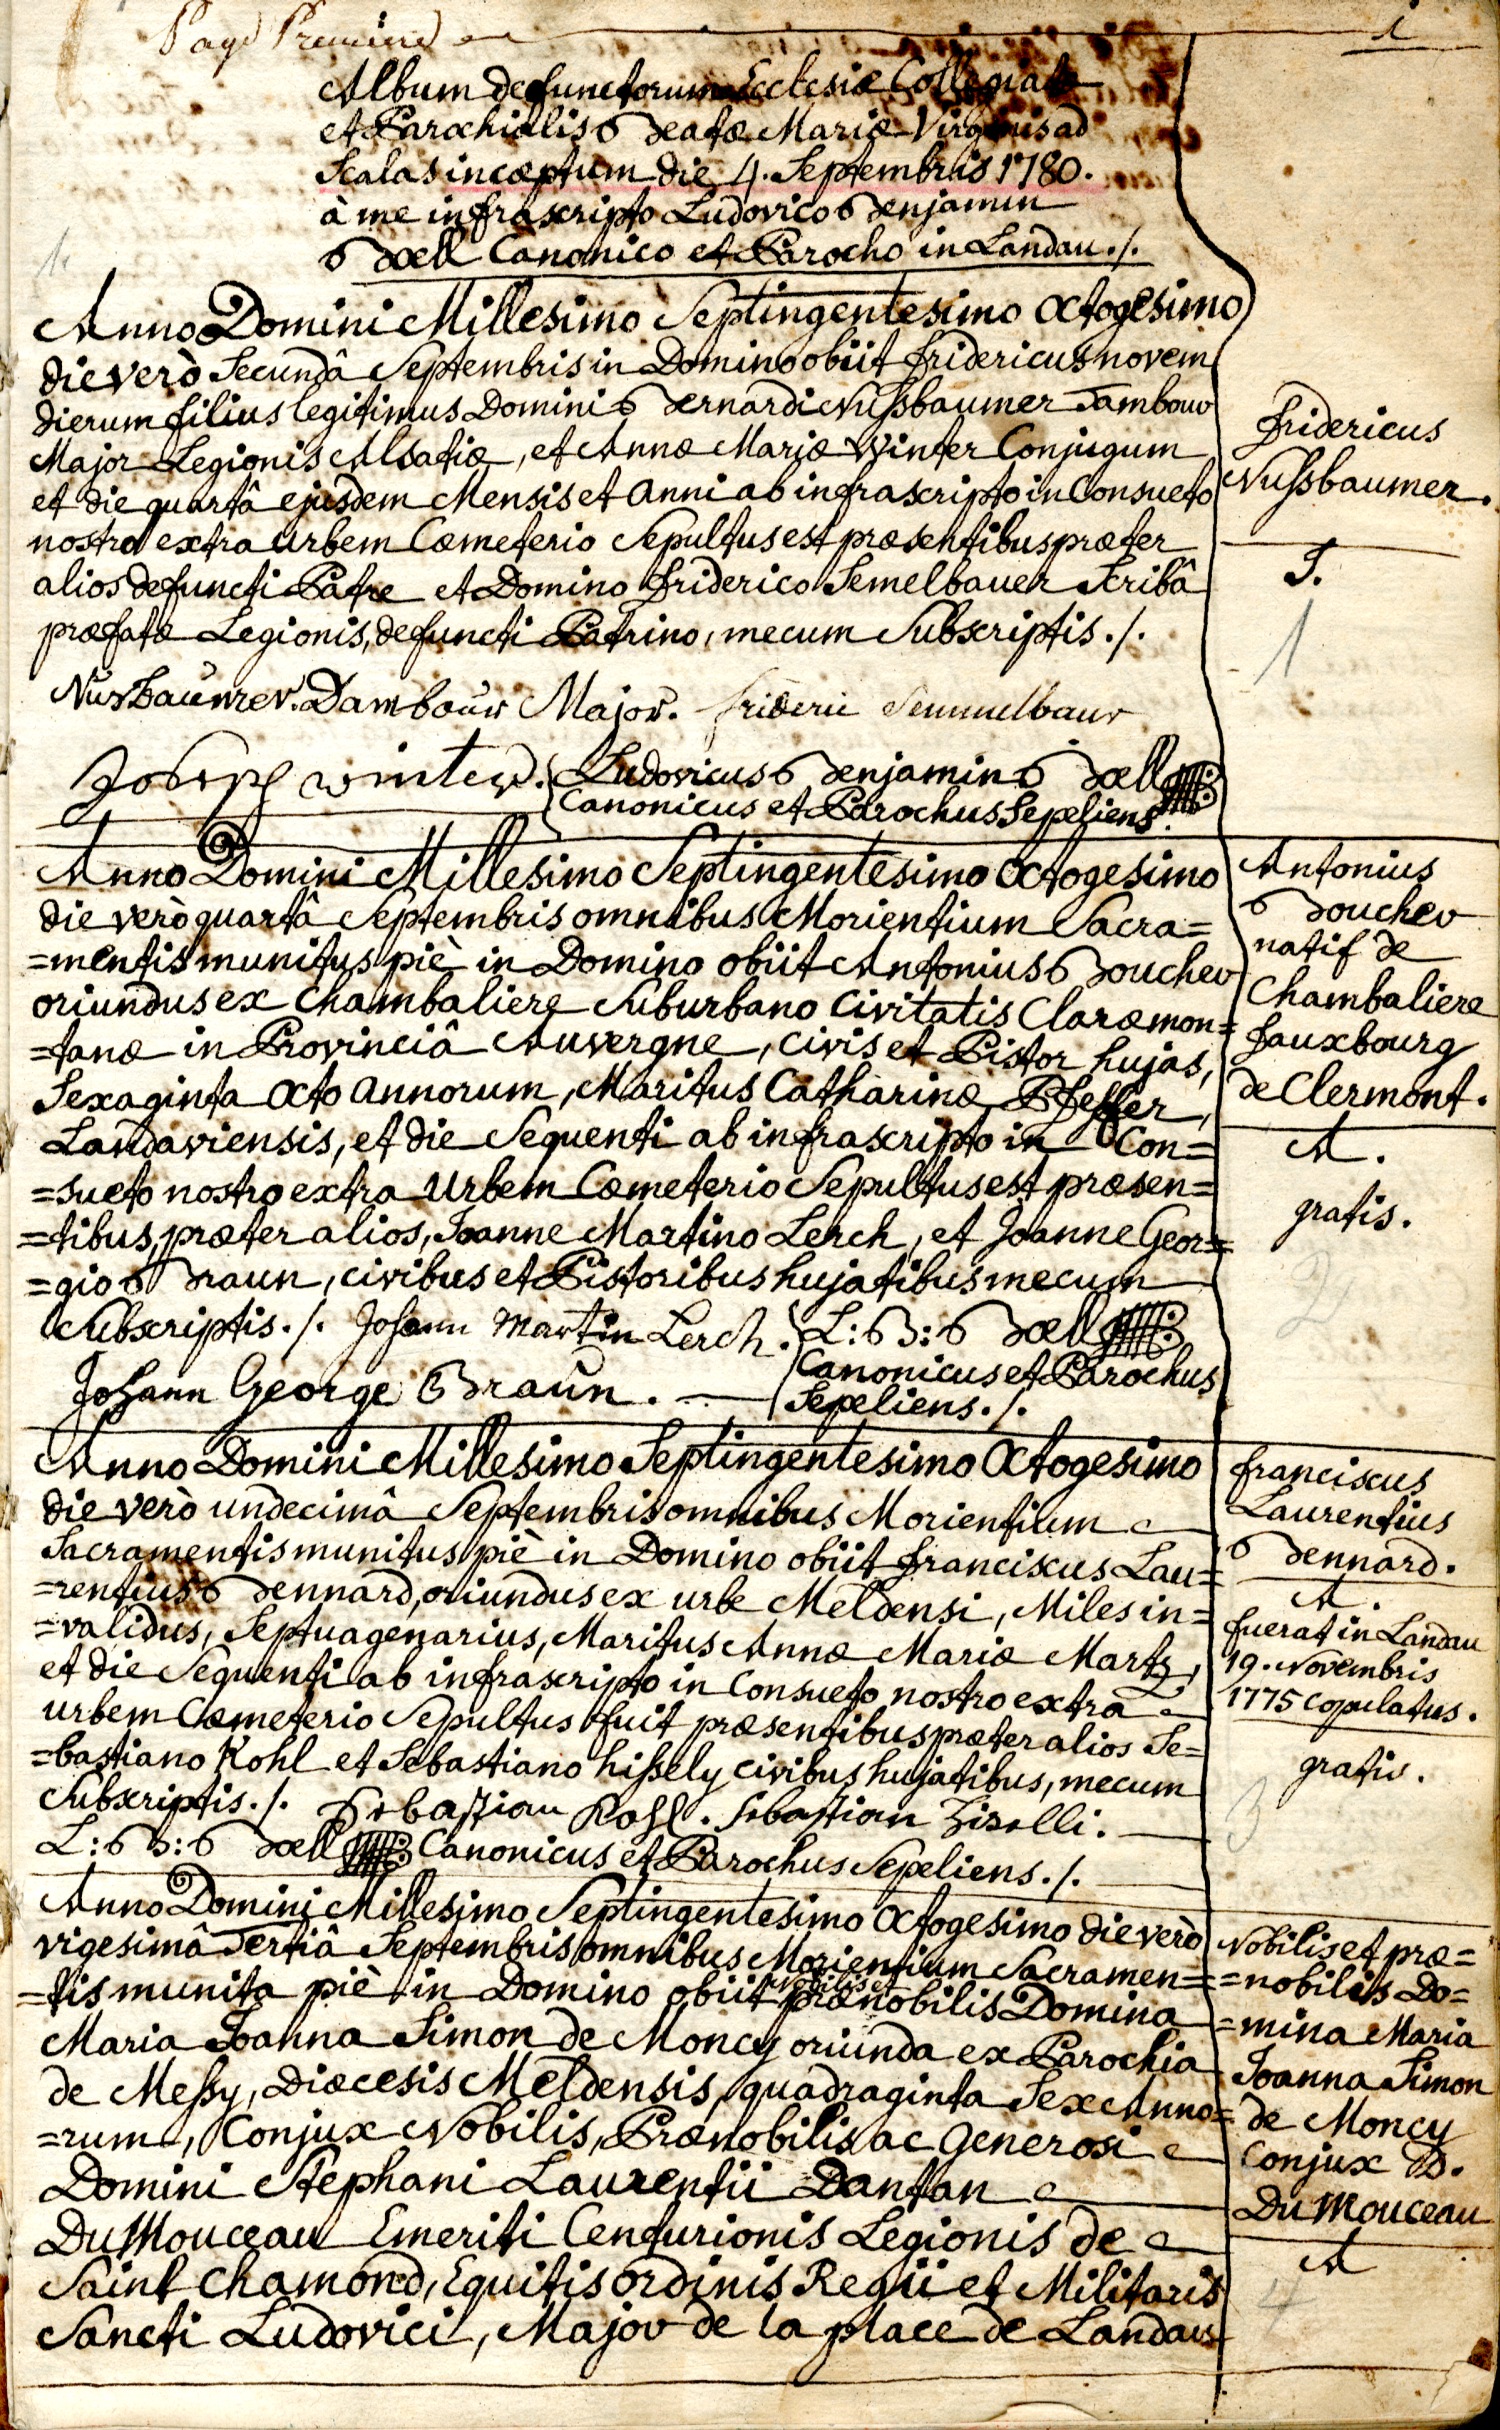 Page Premiere
1
Album defunctorum Ecclesiæ Collegiatæ
et Parochialis Beatæ Mariæ Virginis ad
Scalas inceptum die 4. Septembris 1780.
à me infrascripto Ludovico Benjamin
Boell Canonico et Parocho in Landau ./.
1.
Anno Domini Millesimo Septingentesimo Octogesimo
die verò Secundâ Septembris in Domino obiit fridericus novem
dierum filius legitimus Domini Bernardi Nussbaumer Tambour
Major Legionis Alsatiæ, et Annæ Mariæ Winter Conjugum
et die quartâ ejusdem Mensis et Anni ab infrascripto in Consueto
nostro extra Urbem Cœmeterio Sepultus est præsentibus præter
alios defuncti Patre et Domino friderico Semelbauer Scribâ
præfatæ Legionis, defuncti Patrino, mecum Subscriptis ./.
Nusbaumer. Dambour Major. frideric Semmelbaur
Joseph winter. Ludovicus Benjamin Boell
Canonicus et Parochus Sepeliens.
fridericus
Nussbaumer.
J.
1
Anno Domini Millesimo Septingentesimo Octogesimo
die verò quartâ Septembris omnibus Morientium Sacra=
=mentis munitus piè in Domino obiit Antonius Boucher
oriundus ex Chambaliere Suburbano Civitatis Claræmon=
=tanæ in Provinciâ Auvergne, civis et Pistor hujas,
Sexaginta Octo annorum, Maritus Catharinæ Pfeffer,
Landaviensis, et die Sequenti ab infrascripto in Con=
=sueto nostro extra Urbem Cœmeterio Sepultus est præsen=
=tibus, præter alios, Joanne Martino Lerch, et Joanne Geor=
=gio Braun, civibus et Pistoribus hujatibus mecum
Subscriptis ./. Johann Martin Lerch. L: B: Boell
Canonicus et Parochus
Johann George Braun. Sepeliens ./.
Antonius
Boucher
natif de
Chambaliere
fauxbourg
de Clermont.
A.
gratis.
2
Anno Domini Millesimo Septingentesimo Octogesimo
die verò undecimâ Septembris omnibus Morientium
Sacramentis munitus piè in Domino obiit franciscus Lau=
=rentius Bennard, oriundus ex urbe Meldensi, Miles in=
=validus, Septuagenarius, Maritus Annæ Mariæ Martz,
et die Sequenti ab infrascripto in Consueto nostro extra
urbem Cœmeterio Sepultus fuit præsentibus præter alios Se=
=bastiano Kohl et Sebastiano hissely civibus hujatibus, mecum
Subscriptis ./. Sebastian Kohl. Sebastian Zisolli.
L: B: Boell Canonicus et Parochus Sepeliens ./.
franciscus
Laurentius
Bennard.
A.
fuerat in Landau
19. Novembris
1775 copulatus.
gratis.
3
Anno Domini Millesimo Septingentesimo Octogesimo die verò
vigesimâ Tertiâ Septembris omnibus Morientium Sacramen=
=tis munita piè in Domino obiit nobilis et prænobilis Domina
Maria Joanna Simon de Moncy oriunda ex Parochia
de Messy, Diœcesis Meldensis, quadraginta Sex Anno=
=rum, Conjux Nobilis, Prænobilis ac Generosi
Domini Stephani Laurentii Dantan
Du Mouceau Emeriti Centurionis Legionis de
Saint Chamond, Equitis Ordinis Regii et Militaris
Sancti Ludovici, Major de la place de Landau
Nobilis et præ=
=nobilis Do=
=mina Maria
Joanna Simon
de Moncy
Conjux D.
Du Mouceau
A
4